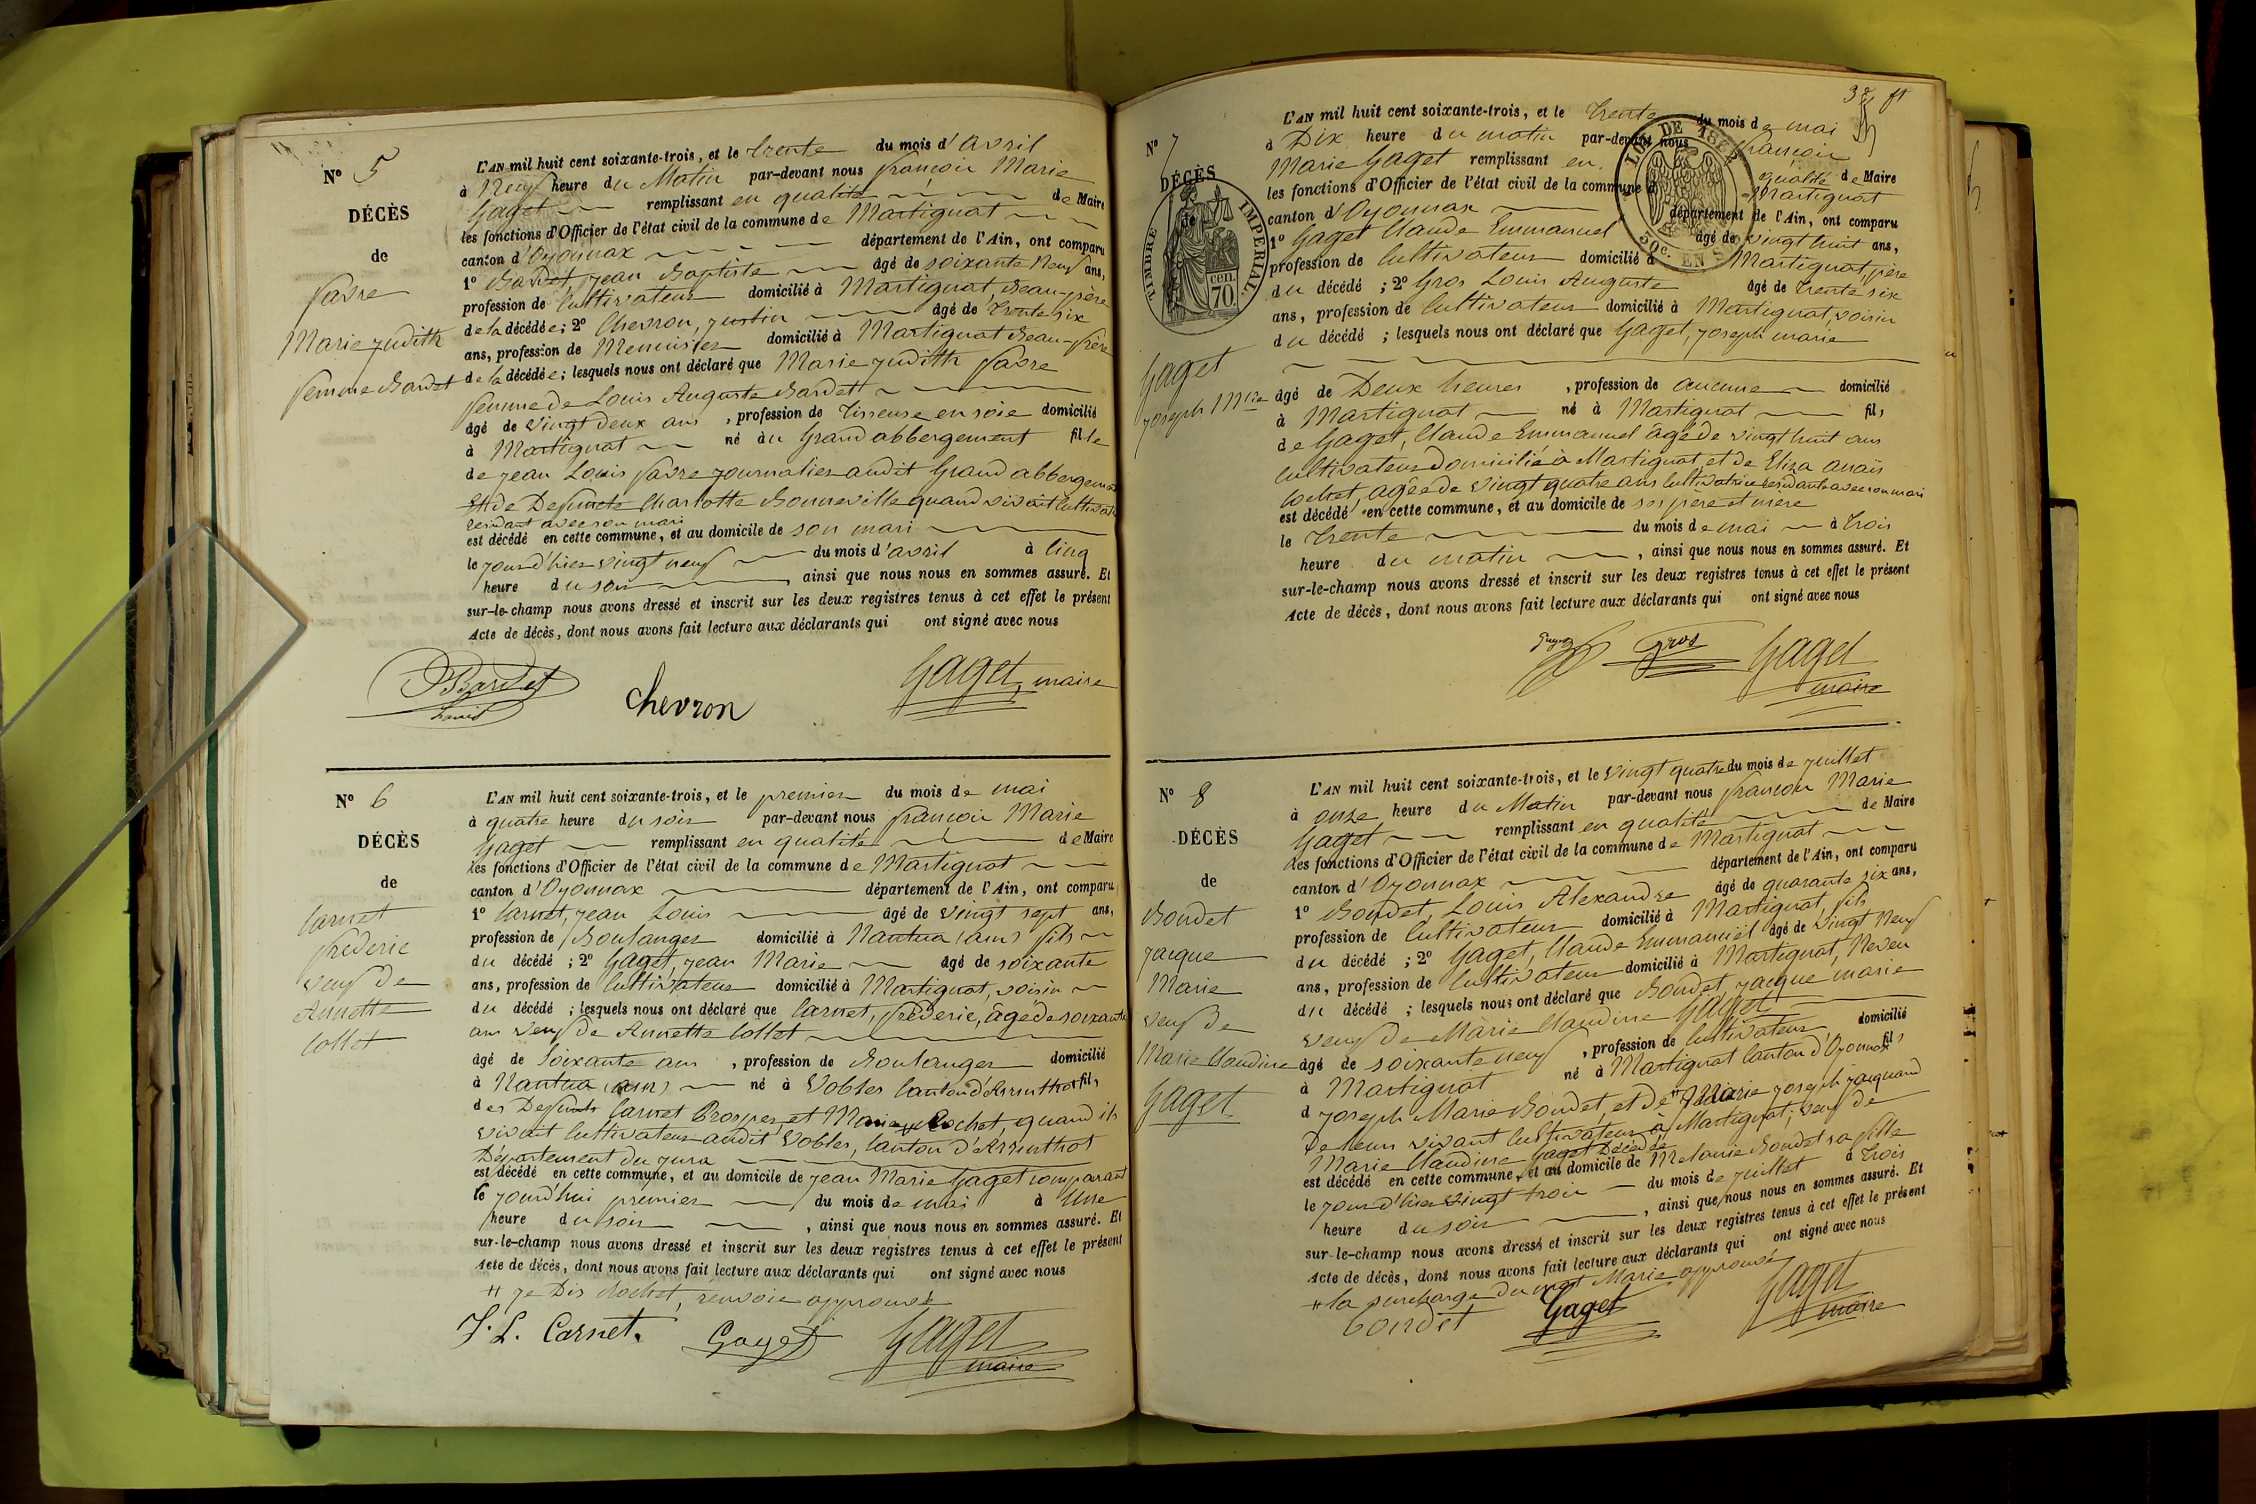 Nº 5
DÉCÈS
de
Favre
Marie Judith
femme Bardet
L'AN mil huit cent soixante-trois, et le trente du mois d'avril
à Neuf heure du Matin par-devant nous françois Marie
Gaget remplissant en qualité de Maire
les fonctions d'Officier de l'état civil de la commune de Martignat
canton d'Oyonnax département de l'Ain, ont comparu
1º Bardet, jean Baptiste âgé de soixante Neuf ans,
profession de Cultivateur domicilié à Martignat, Beau-père
de la décédée; 2º Chevron, justin âgé de trente six
ans, profession de Menuisier domicilié à Martignat Beau-frère
de la décédée; lesquels nous ont déclaré que Marie judith favre
femme de Louis Auguste Bardet
âgé de vingt deux ans, profession de Tisseuse en soie domicilié
à Martignat né au Grand abbergement fille
de jean Louis favre journalier audit Grand abbergement
et de Defuncte Charlotte Bonneville quand vivait Cultivat
residant avec son mari
est décédé en cette commune, et au domicile de son mari
le jourd'hier vingt neuf du mois d'avril à Cinq
heure du soir, ainsi que nous nous en sommes assuré. Et
sur-le-champ nous avons dressé et inscrit sur les deux registres tenus à cet effet le présent
Acte de décès, dont nous avons fait lecture aux déclarants qui ont signé avec nous
JBBardet
Chevron
Gaget, maire
Nº 6
DÉCÈS
de
Carnet
fréderic
veuf de
Annette
Collet
L'AN mil huit cent soixante-trois, et le premier du mois de mai
à quatre heure du soir par-devant nous françois Marie
Gaget remplissant en qualité de Maire
les fonctions d'Officier de l'état civil de la commune de Martignat
canton d'Oyonnax département de l'Ain, ont comparu
1º Carnet, jean Louis âgé de vingt sept ans,
profession de Boulanger domicilié à Nantua (ain) fils
du décédé; 2º Gaget, jean Marie âgé de soixante
ans, profession de Cultivateur domicilié à Martignat, voisin
du décédé; lesquels nous ont déclaré que Carnet, fréderic, âgé de soixante
ans veuf de Annette Collet
âgé de Soixante ans, profession de Boulanger domicilié
à Nantua (ain) né à Vobles Canton d'Arinthot fils
des Defunts Carnet Prosper, et Marie Rochet, quand ils
vivait Cultivateur audit Vobles, Canton d'Arinthot
Département du jura
est décédé en cette commune, et au domicile de jean Marie Gaget comparant
le jourd'hui premier du mois de mai à Une
heure du soir, ainsi que nous nous en sommes assuré. Et
sur-le-champ nous avons dressé et inscrit sur les deux registres tenus à cet effet le présent
Acte de décès, dont nous avons fait lecture aux déclarants qui ont signé avec nous
je Dis Rochet, renvoie approuvé
J. L. Carnet. Gaget Gaget
maire
Nº 7
DÉCÈS
de
TIMBRE IMPERIAL
70 cen.
Gaget
joseph Mrie
LOI DE 1862
50c. EN SUS
L'AN mil huit cent soixante-trois, et le trente du mois de mai
à Dix heure du matin par-devant nous françois
Marie Gaget remplissant en qualité de Maire
les fonctions d'Officier de l'état civil de la commune de Martignat
canton d'Oyonnax département de l'Ain, ont comparu
1º Gaget Claude Emmanuel âgé de vingt huit ans,
profession de Cultivateur domicilié à Martignat, père
du décédé; 2º Gros Louis Auguste âgé de trente six
ans, profession de Cultivateur domicilié à Martignat, voisin
du décédé; lesquels nous ont déclaré que Gaget, joseph marie
âgé de Deux heures, profession de aucune domicilié
à Martignat né à Martignat fils
de Gaget, Claude Emmanuel âgé de vingt huit ans
Cultivateur domicilié à Martignat, et de Eliza anaïs
Cochet, agée de vingt quatre ans Cultivatrice residante avec son mari
est décédé en cette commune, et au domicile de ses père et mère
le trente du mois de mai à trois
heure du matin, ainsi que nous nous en sommes assuré. Et
sur-le-champ nous avons dressé et inscrit sur les deux registres tenus à cet effet le présent
Acte de décès, dont nous avons fait lecture aux déclarants qui ont signé avec nous
Gros Gaget
maire
Nº 8
DÉCÈS
de
Bondet
jacque
Marie
veuf de
Marie Claudine
Gaget
L'AN mil huit cent soixante-trois, et le vingt quatre du mois de juillet
à onze heure du Matin par-devant nous françois Marie
Gaget remplissant en qualité de Maire
les fonctions d'Officier de l'état civil de la commune de Martignat
canton d'Oyonnax département de l'Ain, ont comparu
1º Bondet, Louis Alexandre âgé de quarante six ans,
profession de Cultivateur domicilié à Martignat, fils
du décédé; 2º Gaget, Claude Emmanuel âgé de vingt neuf
ans, profession de Cultivateur domicilié à Martignat, Neveu
du décédé; lesquels nous ont déclaré que Bondet, jacque marie
veuf de Marie Claudine Gaget
âgé de soixante neuf, profession de Cultivateur domicilié
à Martignat né à Martignat Canton d'Oyonnax fils
d joseph Marie Bondet, et de Marie joseph jacquand
de leurs vivant Cultivateur à Martignat; veuf de
Marie Claudine Gaget Décédée
est décédé en cette commune, et au domicile de Melanie Bondet sa fille
le jourd'hier vingt trois du mois de juillet à trois
heure du soir, ainsi que nous nous en sommes assuré. Et
sur-le-champ nous avons dressé et inscrit sur les deux registres tenus à cet effet le présent
Acte de décès, dont nous avons fait lecture aux déclarants qui ont signé avec nous
la surcharge du mot Marie approuvé
Bondet Gaget Gaget
maire